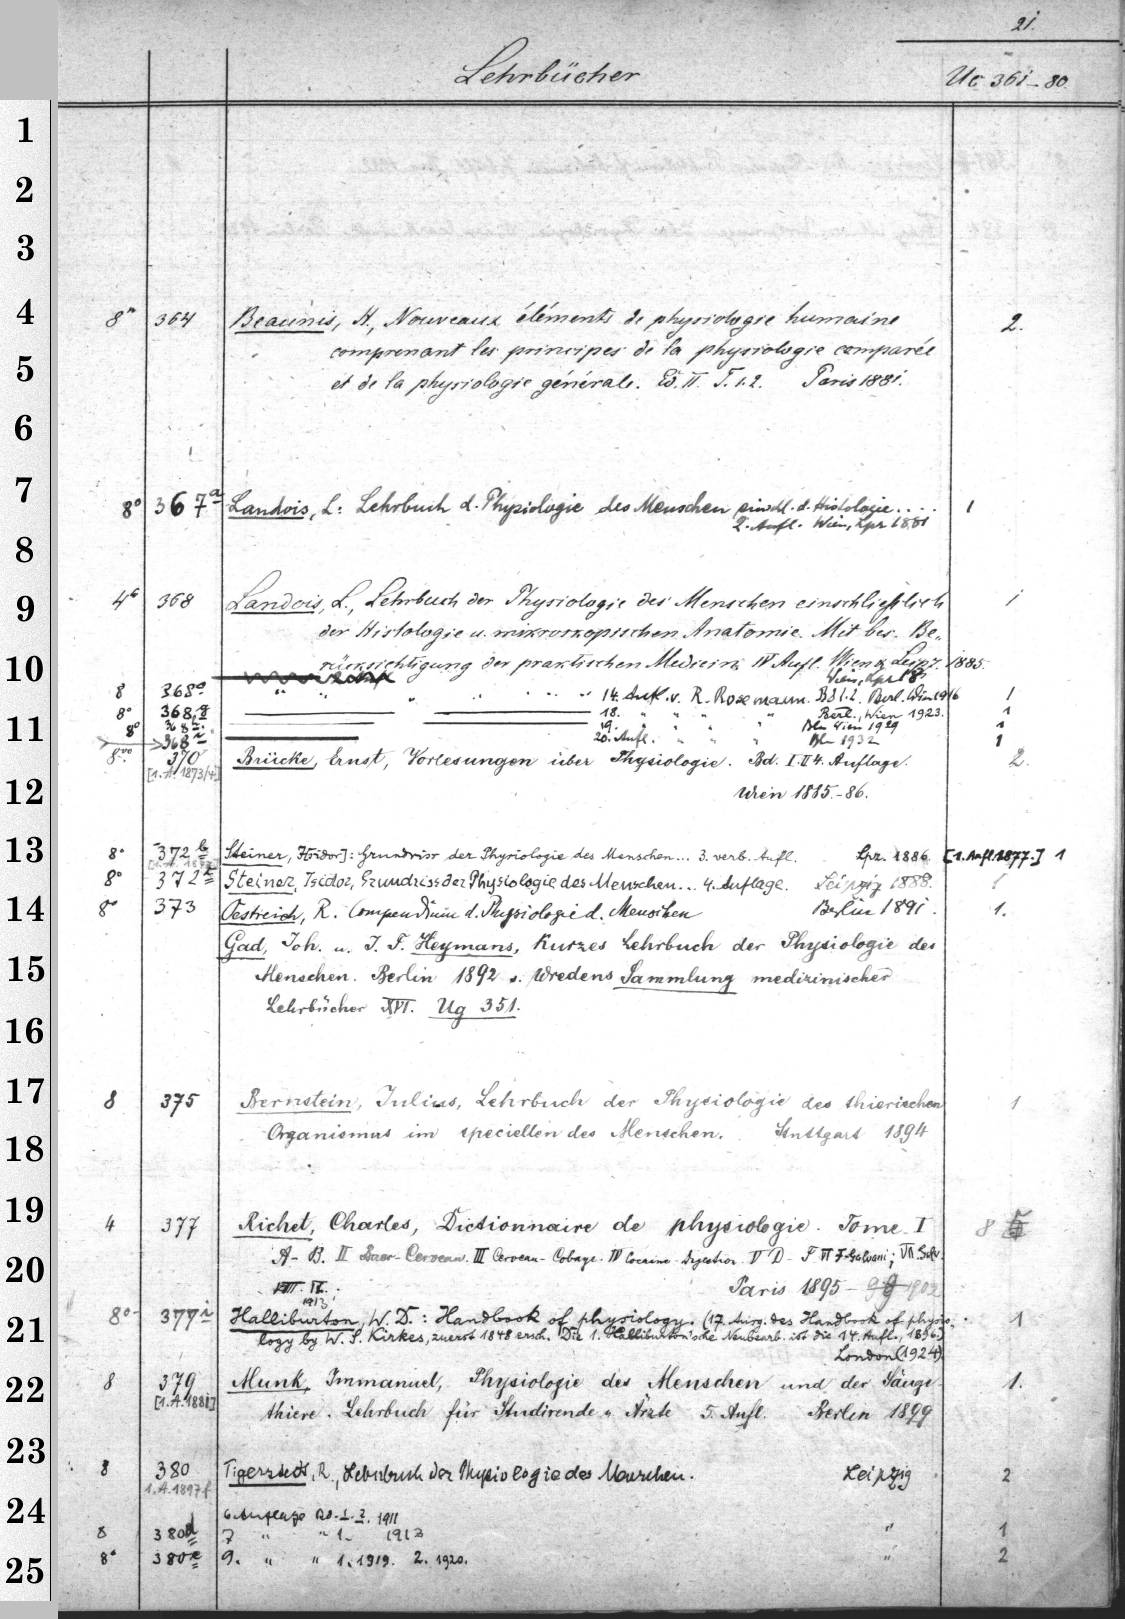 21.
Lehrbücher Uc 361-80
1
2
3
4 8° 364 Beaunis, H., Nouveaux éléments de physiologie humaine 2.
5 comprenant les principes de la physiologie comparée
et de la physiologie générale. Ed. II. T. 1.2. Paris 1881.
6
7 8° 367a Landois, L: Lehrbuch d. Physiologie des Menschen einschl. d. Histologie.... 1
2. Aufl. Wien, Lpz 1881
8
9 4° 368 Landois, L., Lehrbuch der Physiologie des Menschen einschließlich 1
der Histologie u. mikroskopischen Anatomie. Mit bes. Be-
10 rücksichtigung der praktischen Medicin. IV Aufl. Wien & Leipz. 1885.
8 368e " " " " " " 14. Aufl. v. R. Rosemann. Bd 1.2. Berl. Wien 1916 1
8° 368g 18. " " " " Berl., Wien 1923. 1
11 8° 368h 19. " " " " Bln Wien 1929 1
368i 20. Aufl. " " " Bln 1932 1
8° 370 Brücke, Ernst, Vorlesungen über Physiologie. Bd. I.II 4. Auflage. 2.
[1. A. 1873/4]
12 Wien 1885-86.
13 8° 372b Steiner, I[sidor]: Grundriss der Physiologie des Menschen... 3. verb. Aufl. Lpz. 1886 [1. Aufl. 1877.] 1
8° 372c Steiner, Isidor, Grundriss der Physiologie des Menschen... 4. Auflage. Leipzig 1888. 1
14 8° 373 Oestreich, R. Compendium d. Physiologie d. Menschen Berlin 1891. 1.
Gad, Joh. u. J. F. Heymans, Kurzes Lehrbuch der Physiologie des
15 Menschen. Berlin 1892 s. Wredens Sammlung medizinischer
Lehrbücher XVI. Ug 351.
16
17 8 375 Bernstein, Julius, Lehrbuch der Physiologie des thierischen 1
18 Organismus im speciellen des Menschen. Stuttgart 1894
19 4 377 Richet, Charles, Dictionnaire de physiologie. Tome I 8
20 A-B. II Baer-Cerveau. III Cerveau-Cobaye. IV Cocaine-Digestion V D- F VI F-Galvani; VII
VIII. IX. Paris 1895-
1913
21 8° 377i Halliburton, W. D.: Handbook of physiology. (17. Ausg. des Handbook of physio- 1
logy by W. S. Kirkes, zuerst 1848 ersch. Die 1. Halliburton'sche Neubearb. ist die 14. Aufl., 1896.)
London (1924).
22 8 379 Munk, Immanuel, Physiologie des Menschen und der Säuge- 1.
[1. A. 1881] thiere. Lehrbuch für Studirende u. Ärzte 5. Aufl. Berlin 1899
23
8 380 Tigerstedt, R., Lehrbuch der Physiologie des Menschen. Leipzig 2
1. A. 1897f
24 6. Auflage Bd. 1. 2. 1911
8 380d 7 " " 1. 1913 " 1
25 8° 380e 9. " " 1. 1919. 2. 1920. " 2